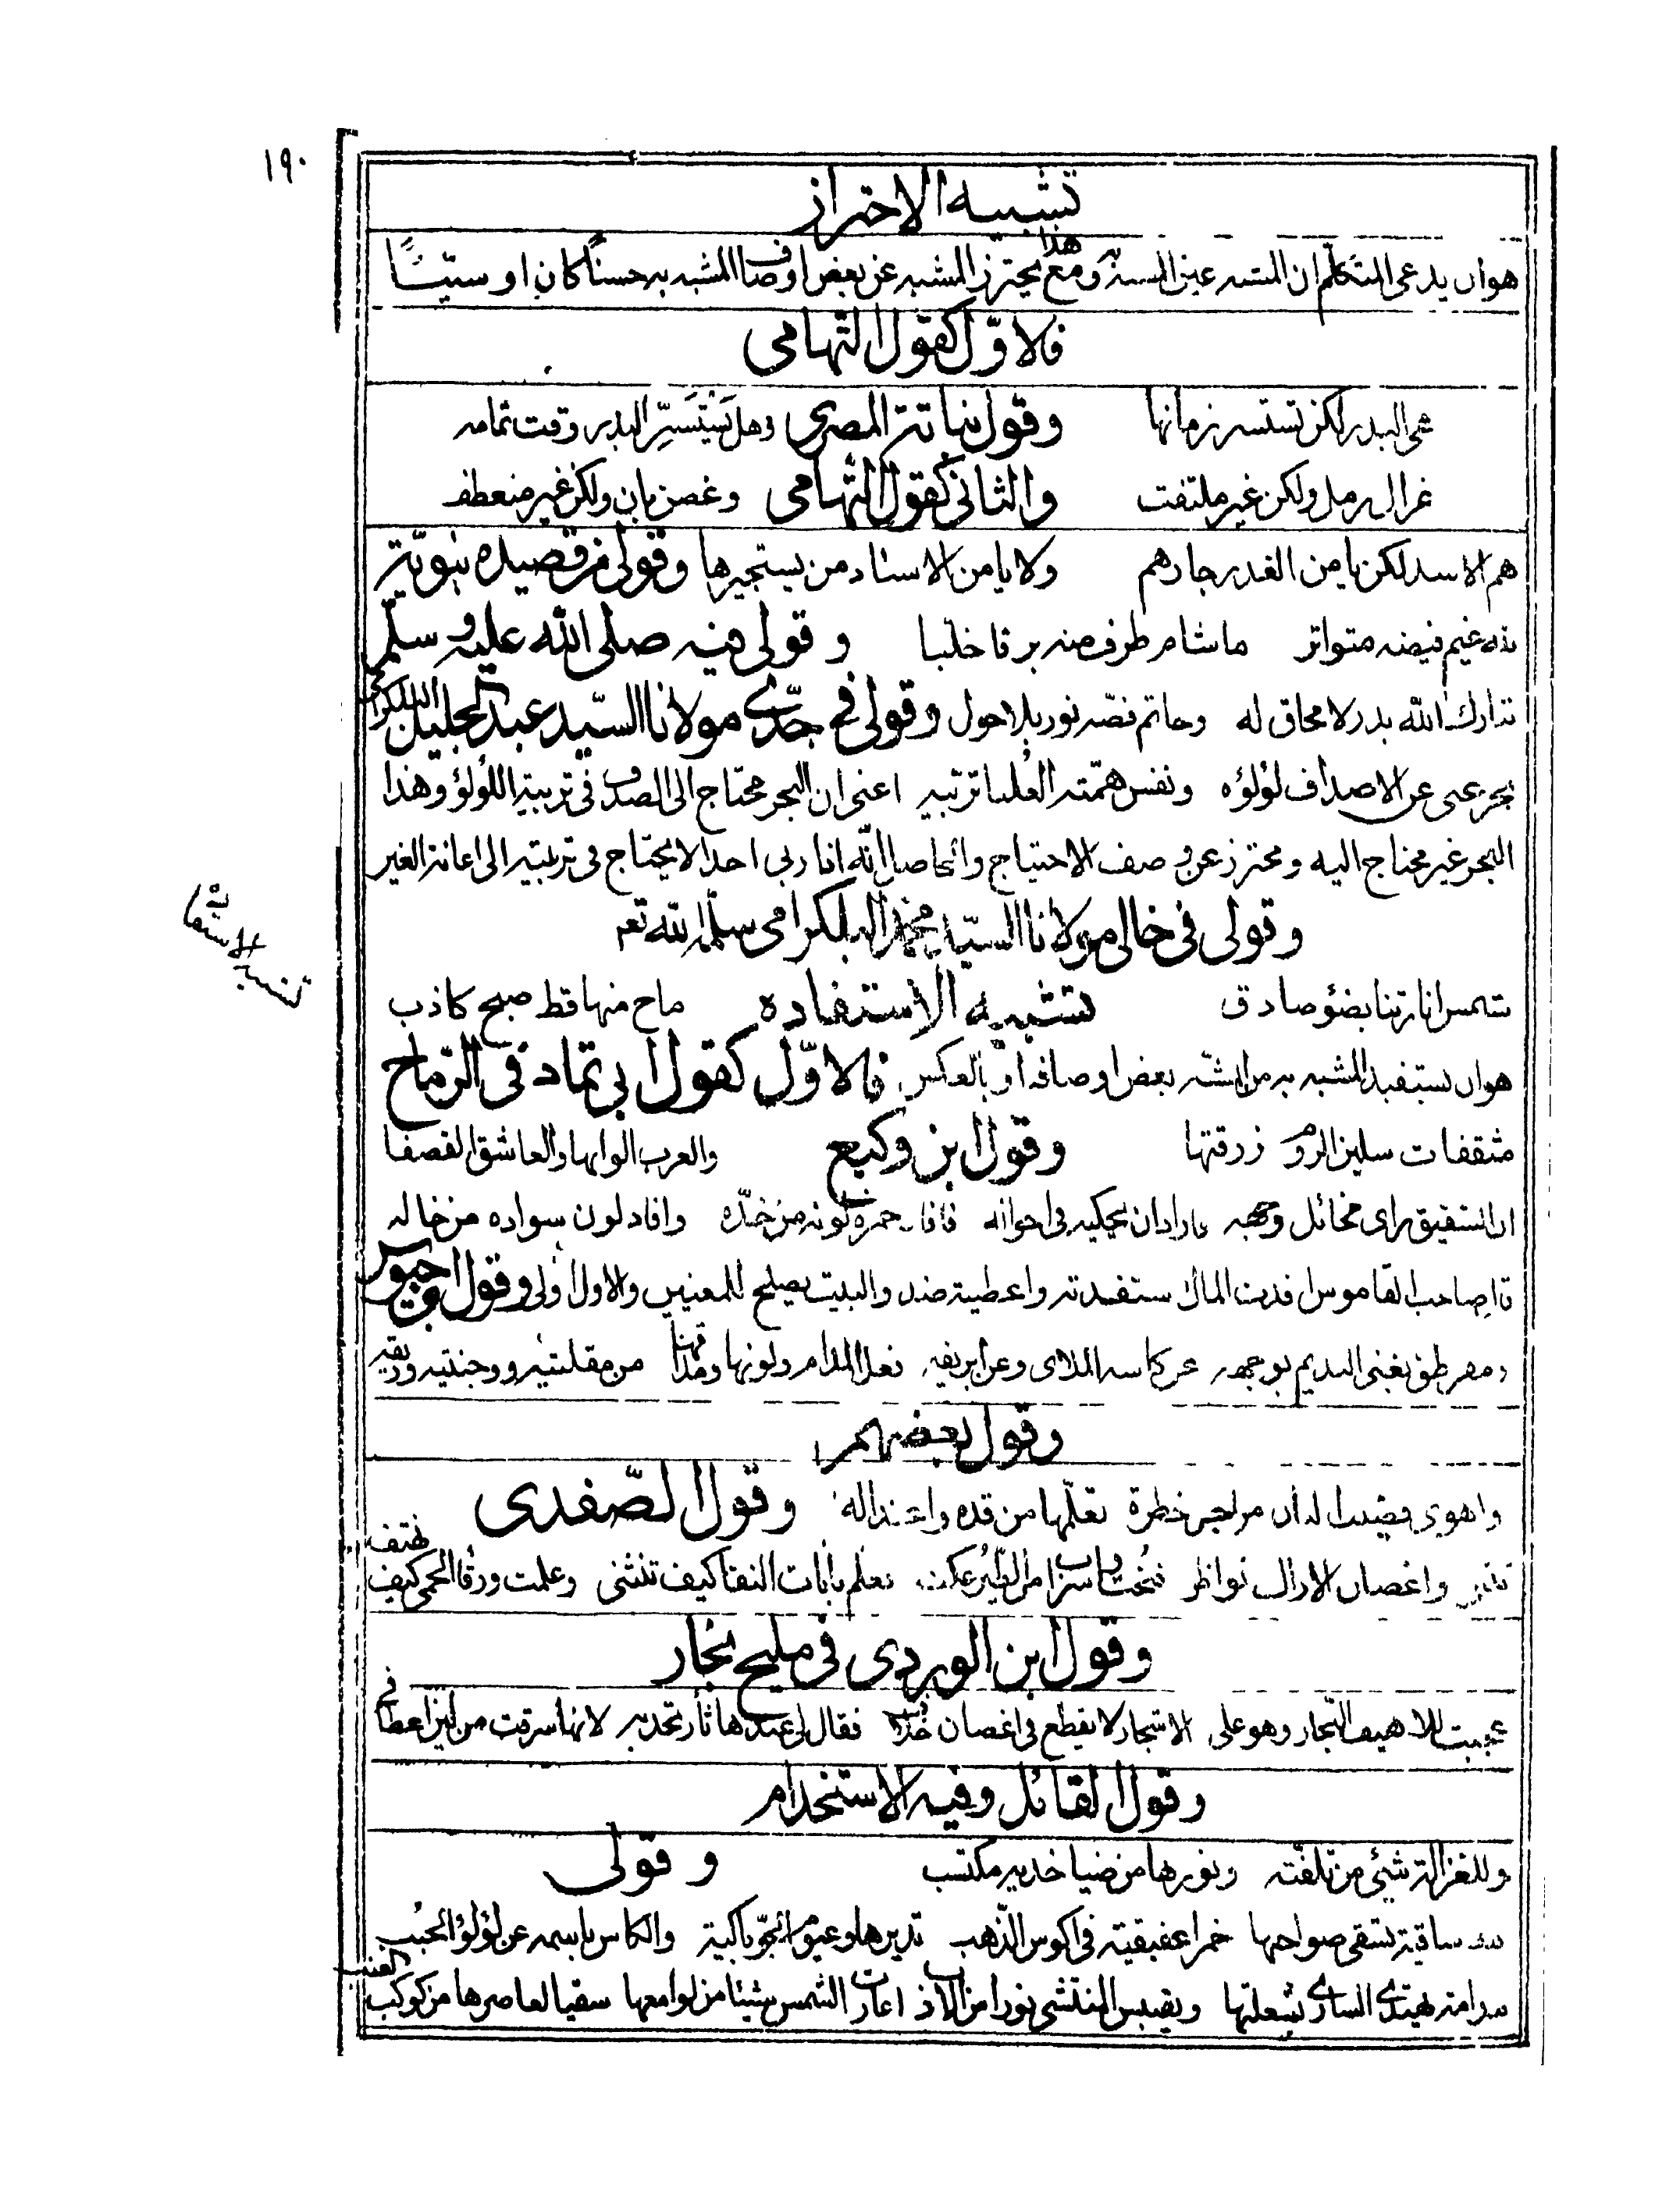 ١٩٠
تشبيه الاحتراز
هو ان يدعى المتكلم ان المشبه عين المشبه به ومع هذا يحترز المشبه عن بعض اوصاف المشبه به حسنًا كان او سيّئًا
فالاوّل كقول التهامى
هى البدر لكن تستسر زمانها وهل يَستَسَرّ البدر وقت تمامه وقول نباتة المصرى
غزال رمل ولكن غير ملتفت وغصن بان ولكن غير منعطف والثانى كقول التهامى
هم الاسد لكن يامن الغدر جارهم ولا يامن الاسناد من يستجيرها وقولى من قصيده نبويّة
غيم فيضه متواتر ما شام طرف منه برقا خلبا وقولى فيه صلى الله عليه وسلّم
تبارك الله بدر لا محاق له وخاتم فصّه نور بلا حول وقولى فى جدّى مولانا السيّد عبد الجليل البلكرامى
بحر غنى عن الاصداف لؤلؤه ونفس همّته العُليا تربّيه اعنى ان البحر محتاج الى الصدف فى تربية اللؤلؤ وهذا
البحر غير محتاج اليه ومحترز عن وصف الاحتياج والحاصل انّه اذا ربى احدا لا يحتاج فى تربيته الى اعانة الغير
وقولى فى خالى مولانا السيّد محمّد البلكرامى سلّمه الله تعم
شمس انارتنا بضؤ صادق ماح منها قط صبح كاذب تشبيه الاستفاده
تشبيه الاستفاده
هو ان يستفيد المشبه به من المشبّه بعض اوصافه او بالعكس فالاوّل كقول ابى تمام فى الرّماح
مثقفات سلبن الروم زرقتها والعرب الوانها والعاشق القصفا وقول ابن وكيع
ان الشقيق راى مخائل وجهه فاراد ان يحكيه فى احواله فافاد حمرة لونه من خدّه وافاد لون سواده من خاله
قال صاحب القاموس افدت المال استفدته واعطيته ضد والبيت يصلح للمعنيين والاول اولى وقول ابن حيوس
ومهرطق يغنى النديم بوجهه عن كاسه الملاى وعن ابريقه فعل المدام ولونها ومذاقها من مقلتيه ووجنتيه وريقه
وقول بعضهم
واهوى قضيب البان من اجل خطرة تعلّمها من قده واعتداله وقول الصّفدى
واغصان الاراك نواظر تعلّم بانات النقا كيف تنثنى وعلمت ورقاء الحمى كيف تهتف
وقول ابن الوردى فى مليح نجار
عجبت للاهيف النجار وهو على الاشجار لا يقطع فى اغصان فقال لى عندها ثار تخذ به لانها سرقت من لين اعطافى
وقول القائل وفيه الاستخدام
وللغزالة شيئ من تلفّته ونورها من ضيا خديه مكتسب وقولى
ساقية تسقى صواحبها خمرا عقيقية فى اكوس الذّهب تديرها وعيون الجوّ باكية والكاس باسمه عن لؤلؤ الحبُب
مدامة يهتدى السارى بشعلتها ويقبس المنتشى نورا من اعارت الشمس شيئا من لوامعها سقيا لعاصرها من كوكب العنب